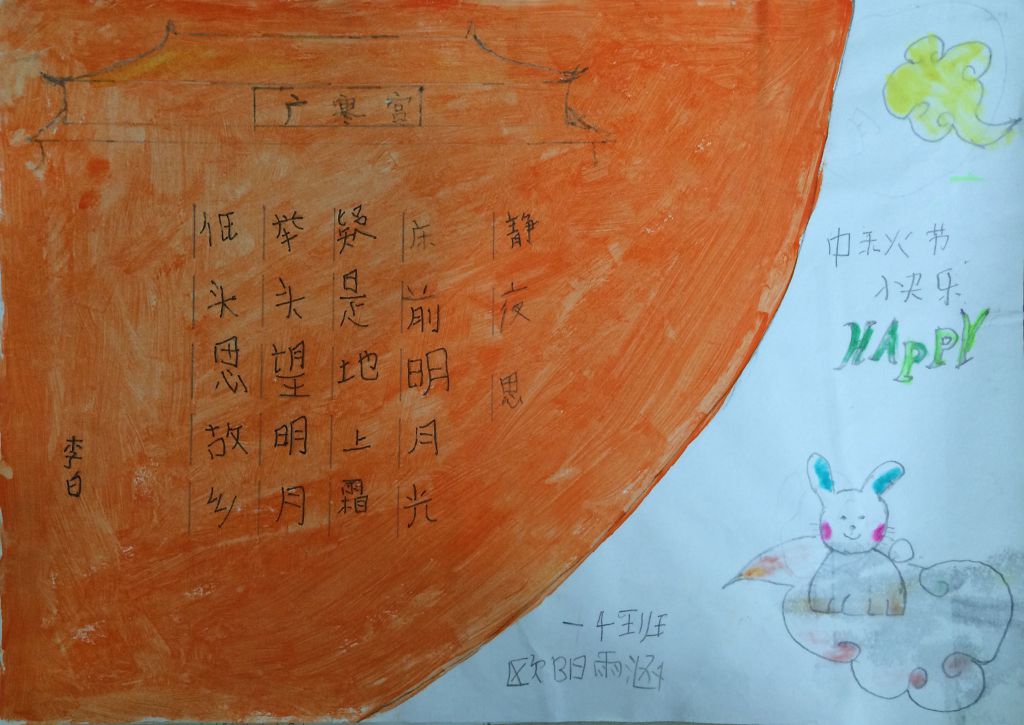 广寒宫
静夜思
床前明月光
疑是地上霜
举头望明月
低头思故乡
李白
节
快乐
HAPPY
一4班